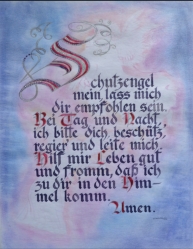 Schutzengel
mein, lass mich
dir empfohlen sein.
Bei Tag und Nacht,
ich bitte dich, beschütz',
regier und leite mich.
Hilf mir Leben gut
und fromm, daß ich
zu dir in den Him-
mel komm.
Amen.